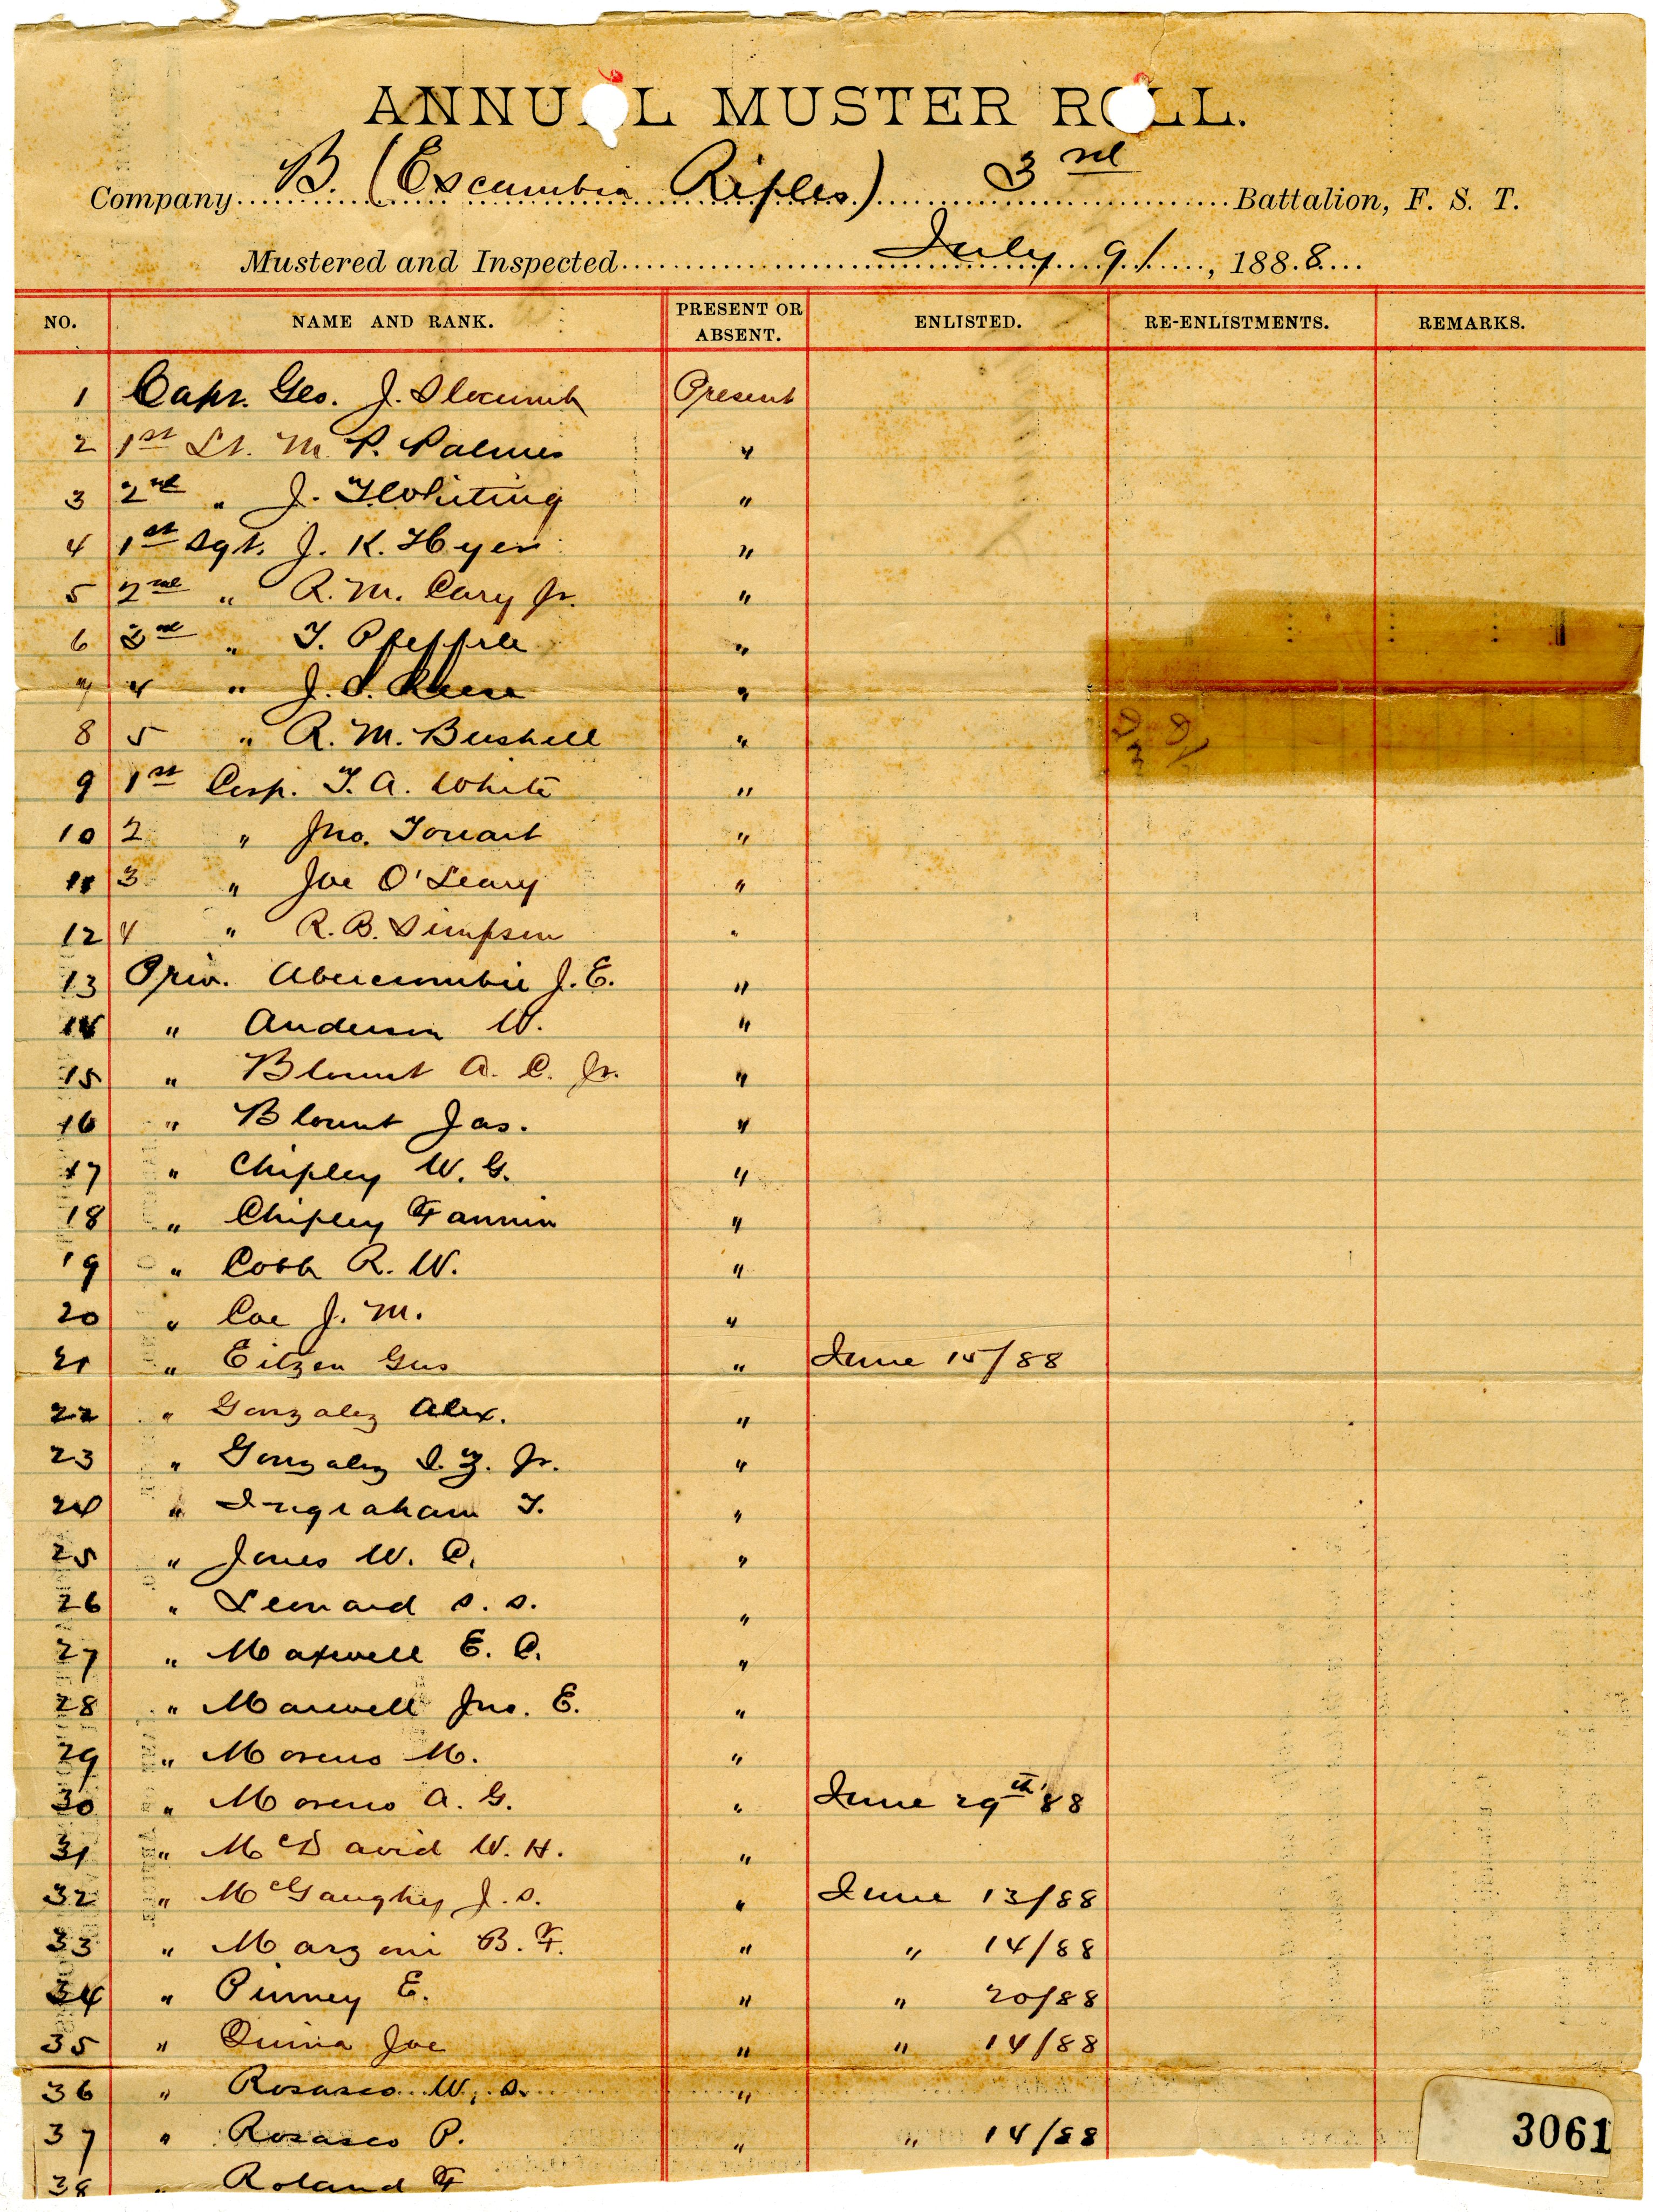 ANNUAL MUSTER ROLL.
Company B. (Escambia Rifles) 3rd Battalion, F. S. T.
Mustered and Inspected July 9/, 1888
NO. NAME AND RANK. PRESENT OR ABSENT. ENLISTED. RE-ENLISTMENTS. REMARKS.
1 Capt. Geo. J. Slocumb Present
2 1st Lt. M. P. Palmes "
3 2nd " J. F. Whiting "
4 1st Sgt. J. K. Hyer "
5 2nd " R. M. Cary Jr. "
6 3rd " T. Pfeiffer "
7 4 " J. S. Reese "
8 5 " R. M. Bushell "
9 1st Corp. T. A. White "
10 2 " Jno. Touart "
11 3 " Joe O'Leary "
12 4 " R. B. Simpson "
13 Priv. Abercrombie J. E. "
14 " Anderson W. "
15 " Blount A. C. Jr. "
16 " Blount Jas. "
17 " Chipley W. G. "
18 " Chipley Fannin "
19 " Cobb R. W. "
20 " Coe J. M. "
21 " Eitzen Gus " June 15/88
22 " Gonzalez Alex. "
23 " Gonzalez S. Z. Jr. "
24 " Ingraham T. "
25 " Jones W. C. "
26 " Leonard S. S. "
27 " Maxwell E. C. "
28 " Maxwell Jno. E. "
29 " Moreno M. "
30 " Moreno A. G. " June 29th '88
31 " McDavid W. H. "
32 " McGaughey J. S. " June 13/88
33 " Marzoni B. F. " " 14/88
34 " Pinney E. " " 20/88
35 " Quina Joe " " 14/88
36 " Rosasco W. S. "
37 " Rosasco P. " " 14/88
38 " Roland F
3061